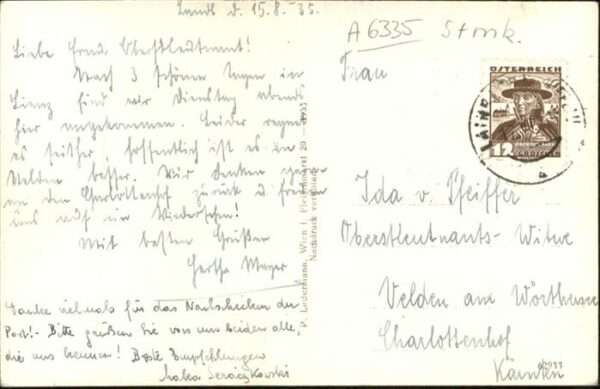 Landl d. 15.8.35.
A 6335 Stmk.
Liebe Frau Oberstleutnant!
Nach 3 schönen Tagen in
Lienz sind wir Dienstag abends
hier angekommen. Leider regnet
es seither, hoffentlich ist es in
Velden besser. Wir denken gerne
an den Charlottenhof zurück u freuen
uns auf ein Wiedersehen!
Mit besten Grüßen
Hertha Mayer
Danke vielmals für das Nachschicken der
Post!- Bitte grüßen Sie von uns beiden alle,
die uns kennen! Beste Empfehlungen
P. Ledermann, Wien I, Fleischmarkt 20
Nachdruck verboten
ÖSTERREICH
12
GROSCHEN
Frau
Ida v. Pfeiffer
Oberstleutnants- Witwe
Velden am Wörthersee
Charlottenhof
Kärnten